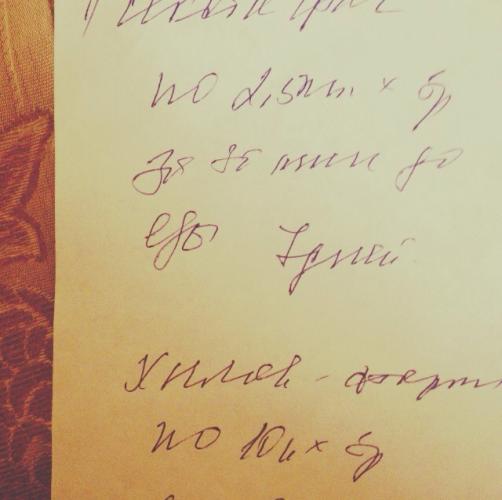 по 2,5мл. × 3р
за 35 мин до
еды 7 дней
Хилак - форте
по 10к × 3р